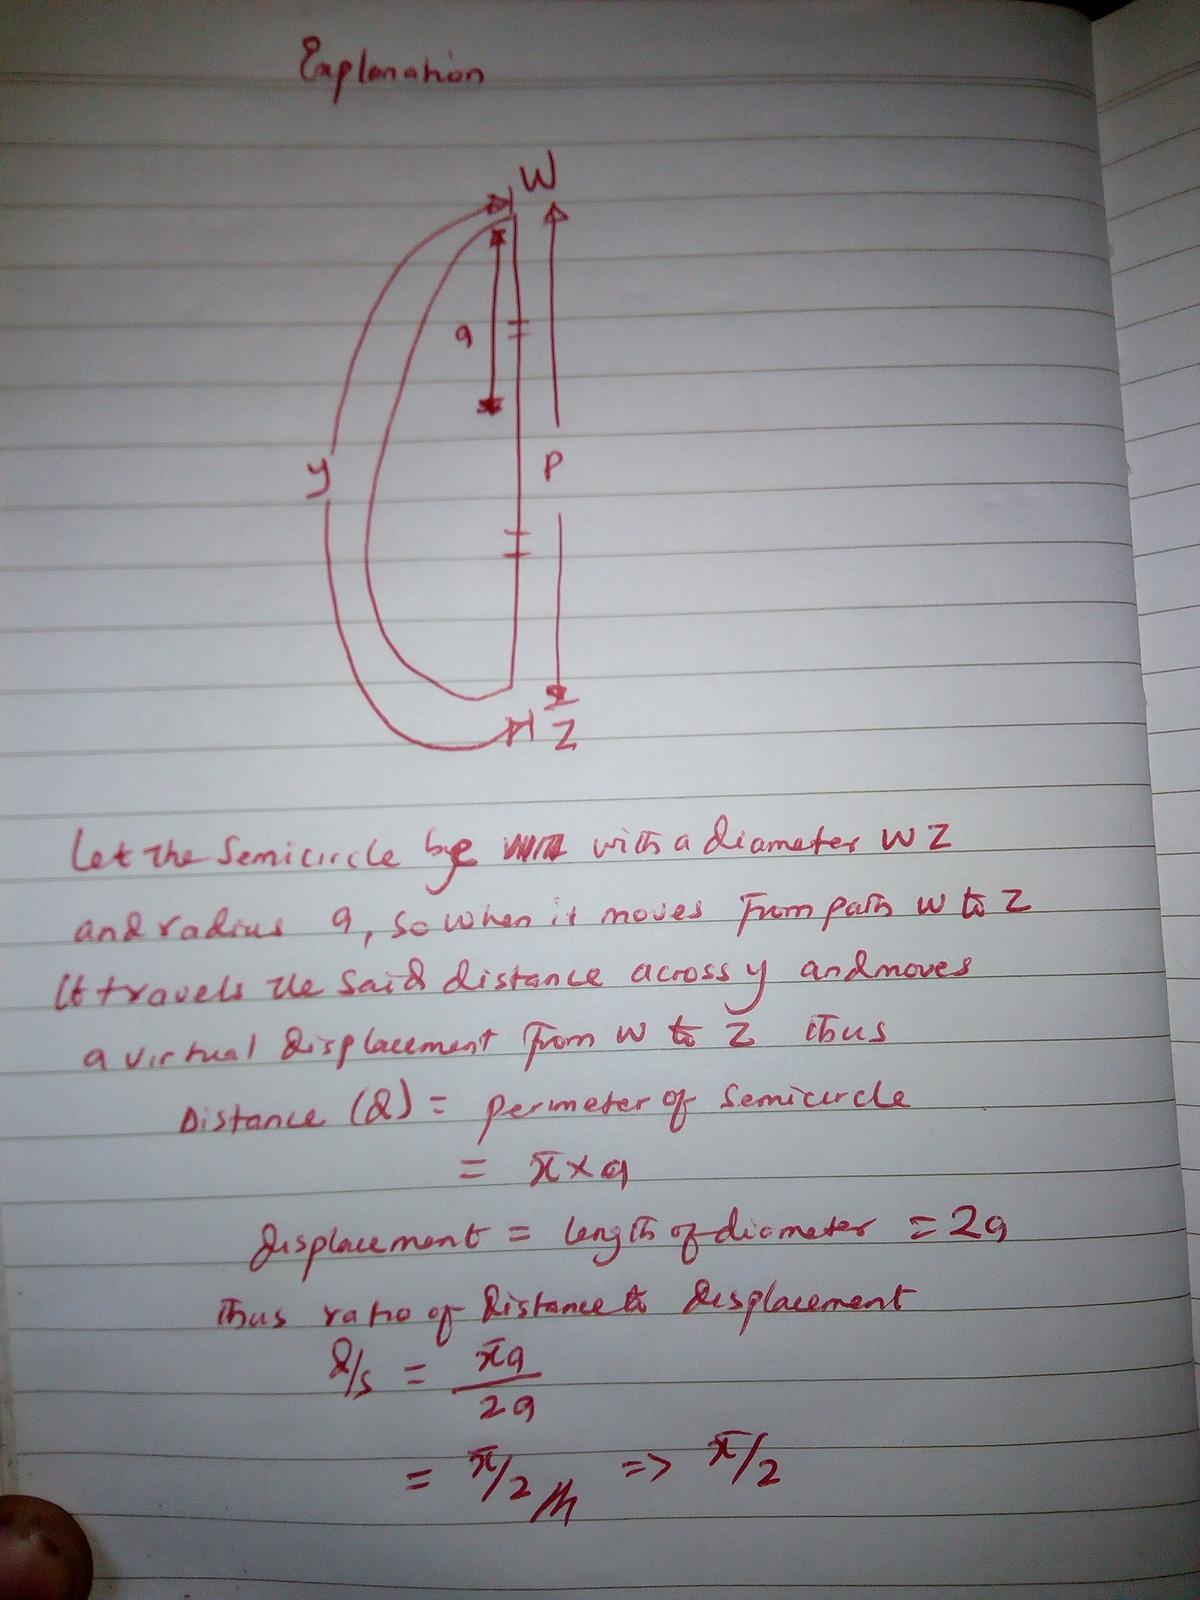 Explanation
W
a
y
P
Z
Let the Semicircle be with a diameter WZ
and radius a, so when it moves from path W to Z
It travels the said distance across y and moves
a virtual displacement from W to Z thus
Distance (d) = perimeter of semicircle
= π × a
displacement = length of diameter = 2a
Thus ratio of distance to displacement
d/s = πa / 2a
= π/2 => π/2